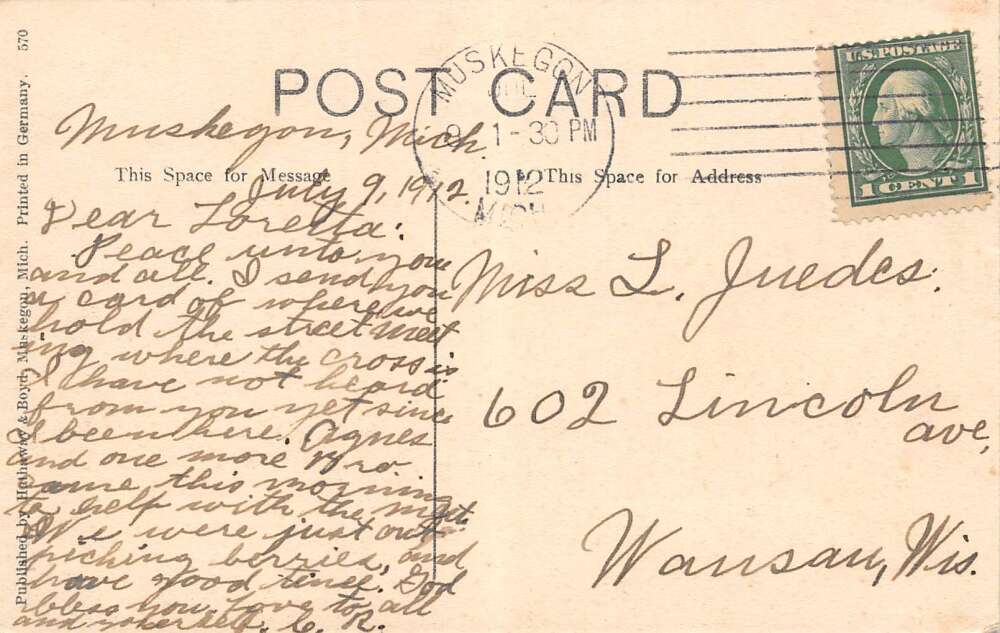 POST CARD
MUSKEGON
JUL
9 1-30 PM
1912
MICH.
U.S. POSTAGE
1 CENT 1
This Space for Message
This Space for Address
Muskegon, Mich.
July 9, 1912.
Dear Loretta:
Peace unto you
and all. I send you
a card of where we
hold the street meet
ing where the cross is
I have not heard
from you yet since
I been here. Agnes
and one more Bro
came this morning
to help with the meet.
We were just out
picking berries, and
have good time. God
bless you. Love to all
and yourself. C. R.
Miss L. Juedes.
602 Lincoln
ave,
Wausau, Wis.
Published by Hathaway & Boyd, Muskegon, Mich. Printed in Germany. 570